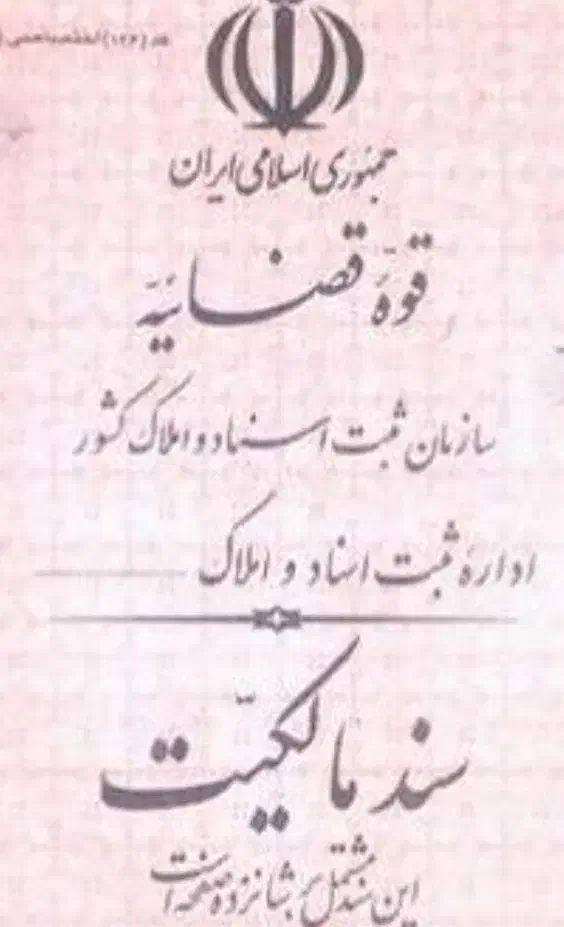 جمهوری اسلامی ایران
قوهٔ قضائیّه
سازمان ثبت اسناد و املاک کشور
ادارهٔ ثبت اسناد و املاک
سند مالکیّت
این سند مشتمل بر شانزده صفحه است